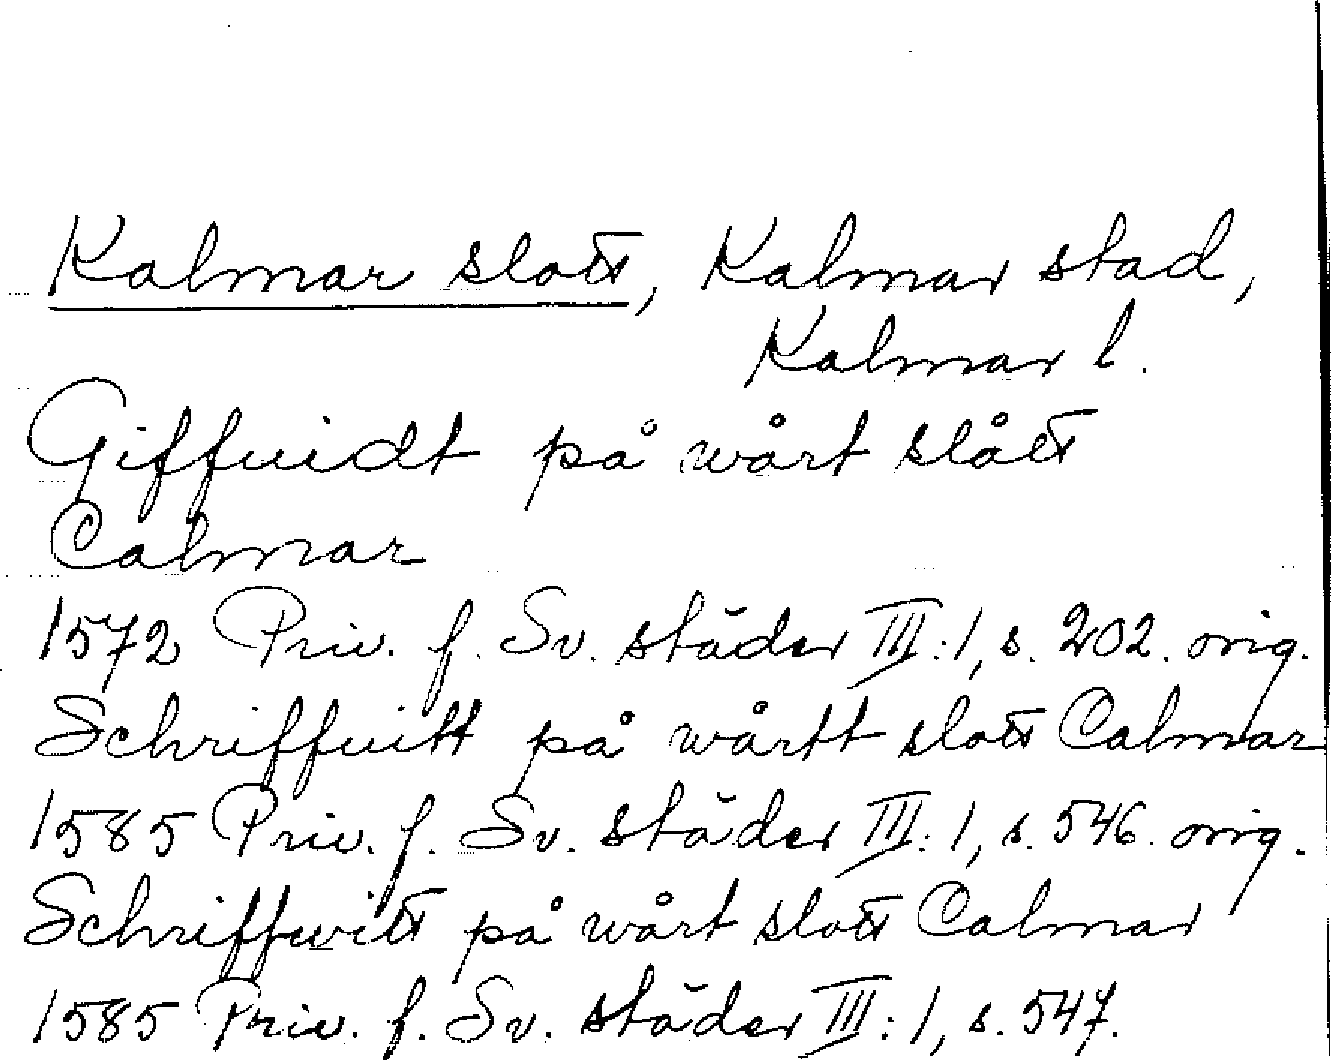 Kalmar slott, Kalmar stad,
Kalmar l.
Giffuidt på wårt slått
Calmar
1572 Priv. f. Sv. städer III:1, s. 202. orig.
Schriffuitt på wårtt slott Calmar
1585 Priv. f. Sv. städer III:1, s. 546. orig.
Schriffwitt på wårt slott Calmar
1585 Priv. f. Sv. städer III:1, s. 547.